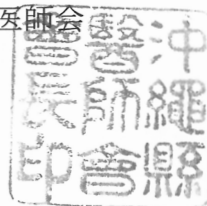 医師会
沖繩縣
醫師會
會長印